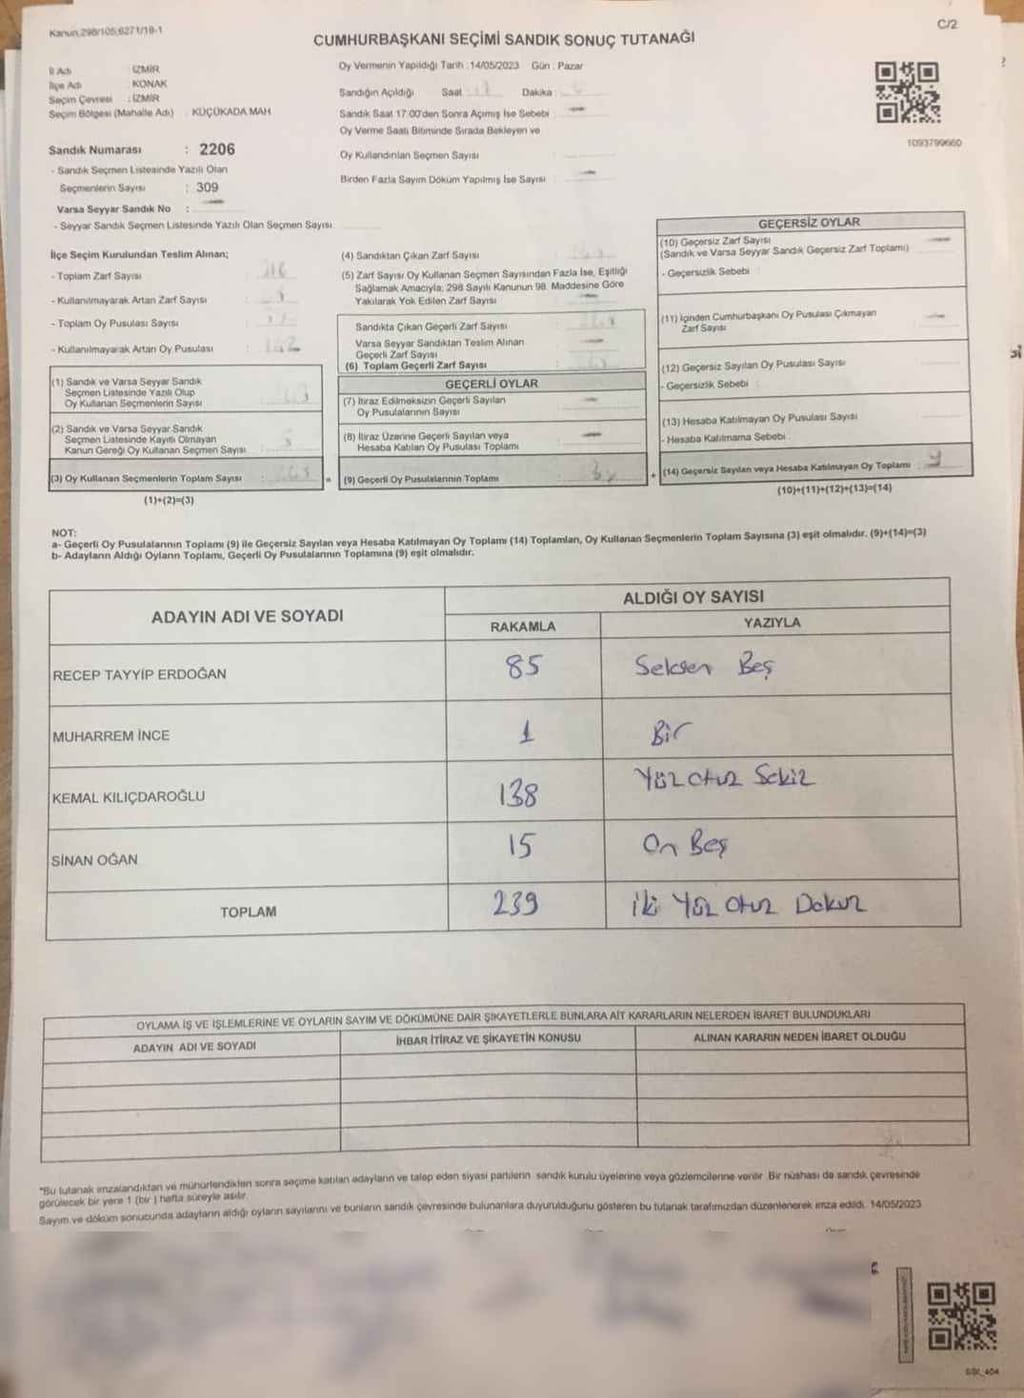 Kanun,298/105,6271/18-1
C/2
CUMHURBAŞKANI SEÇİMİ SANDIK SONUÇ TUTANAĞI
İl Adı : İZMİR
İlçe Adı : KONAK
Seçim Çevresi : İZMİR
Seçim Bölgesi (Mahalle Adı) : KÜÇÜKADA MAH
Sandık Numarası : 2206
- Sandık Seçmen Listesinde Yazılı Olan
Seçmenlerin Sayısı : 309
Varsa Seyyar Sandık No :
- Seyyar Sandık Seçmen Listesinde Yazılı Olan Seçmen Sayısı
Oy Vermenin Yapıldığı Tarih :14/05/2023 Gün : Pazar
Sandığın Açıldığı Saat Dakika :
Sandık Saat 17:00'den Sonra Açımış İse Sebebi
Oy Verme Saati Bitiminde Sırada Bekleyen ve
Oy Kullandırılan Seçmen Sayısı
Birden Fazla Sayım Döküm Yapılmış İse Sayısı
1093799660
İlçe Seçim Kurulundan Teslim Alınan;
- Toplam Zarf Sayısı
- Kullanılmayarak Artan Zarf Sayısı
- Toplam Oy Pusulası Sayısı
- Kullanılmayarak Artan Oy Pusulası
(1) Sandık ve Varsa Seyyar Sandık
Seçmen Listesinde Yazılı Olup
Oy Kullanan Seçmenlerin Sayısı
(2) Sandık ve Varsa Seyyar Sandık
Seçmen Listesinde Kayıtlı Olmayan
Kanun Gereği Oy Kullanan Seçmen Sayısı
(3) Oy Kullanan Seçmenlerin Toplam Sayısı
(1)+(2)=(3)
(4) Sandıktan Çıkan Zarf Sayısı
(5) Zarf Sayısı Oy Kullanan Seçmen Sayısından Fazla İse, Eşitliği
Sağlamak Amacıyla; 298 Sayılı Kanunun 98. Maddesine Göre
Yakılarak Yok Edilen Zarf Sayısı
Sandıkta Çıkan Geçerli Zarf Sayısı
Varsa Seyyar Sandıktan Teslim Alınan
Geçerli Zarf Sayısı
(6) Toplam Geçerli Zarf Sayısı
GEÇERLİ OYLAR
(7) İtiraz Edilmeksizin Geçerli Sayılan
Oy Pusulalarının Sayısı
(8) İtiraz Üzerine Geçerli Sayılan veya
Hesaba Katılan Oy Pusulası Toplamı
(9) Geçerli Oy Pusulalarının Toplamı
GEÇERSİZ OYLAR
(10) Geçersiz Zarf Sayısı
(Sandık ve Varsa Seyyar Sandık Geçersiz Zarf Toplamı)
- Geçersizlik Sebebi
(11) İçinden Cumhurbaşkanı Oy Pusulası Çıkmayan
Zarf Sayısı
(12) Geçersiz Sayılan Oy Pusulası Sayısı
- Geçersizlik Sebebi
(13) Hesaba Katılmayan Oy Pusulası Sayısı
- Hesaba Katılmama Sebebi
(14) Geçersiz Sayılan veya Hesaba Katılmayan Oy Toplamı
(10)+(11)+(12)+(13)=(14)
NOT:
a- Geçerli Oy Pusulalarının Toplamı (9) ile Geçersiz Sayılan veya Hesaba Katılmayan Oy Toplamı (14) Toplamları, Oy Kullanan Seçmenlerin Toplam Sayısına (3) eşit olmalıdır. (9)+(14)=(3)
b- Adayların Aldığı Oyların Toplamı, Geçerli Oy Pusulalarının Toplamına (9) eşit olmalıdır.
ADAYIN ADI VE SOYADI
ALDIĞI OY SAYISI
RAKAMLA YAZIYLA
RECEP TAYYİP ERDOĞAN 85 Seksen Beş
MUHARREM İNCE 1 Bir
KEMAL KILIÇDAROĞLU 138 Yüz Otuz Sekiz
SİNAN OĞAN 15 On Beş
TOPLAM 239 İki Yüz Otuz Dokuz
OYLAMA İŞ VE İŞLEMLERİNE VE OYLARIN SAYIM VE DÖKÜMÜNE DAİR ŞİKAYETLERLE BUNLARA AİT KARARLARIN NELERDEN İBARET BULUNDUKLARI
ADAYIN ADI VE SOYADI İHBAR İTİRAZ VE ŞİKAYETİN KONUSU ALINAN KARARIN NEDEN İBARET OLDUĞU
"Bu tutanak imzalandıktan ve mühürlendikten sonra seçime katılan adayların ve talep eden siyasi partilerin sandık kurulu üyelerine veya gözlemcilerine verilir. Bir nüshası da sandık çevresinde
görülecek bir yere 1 (bir ) hafta süreyle asılır.
Sayım ve döküm sonucunda adayların aldığı oyların sayılarını ve bunların sandık çevresinde bulunanlara duyurulduğunu gösteren bu tutanak tarafımızdan düzenlenerek imza edildi. 14/05/2023